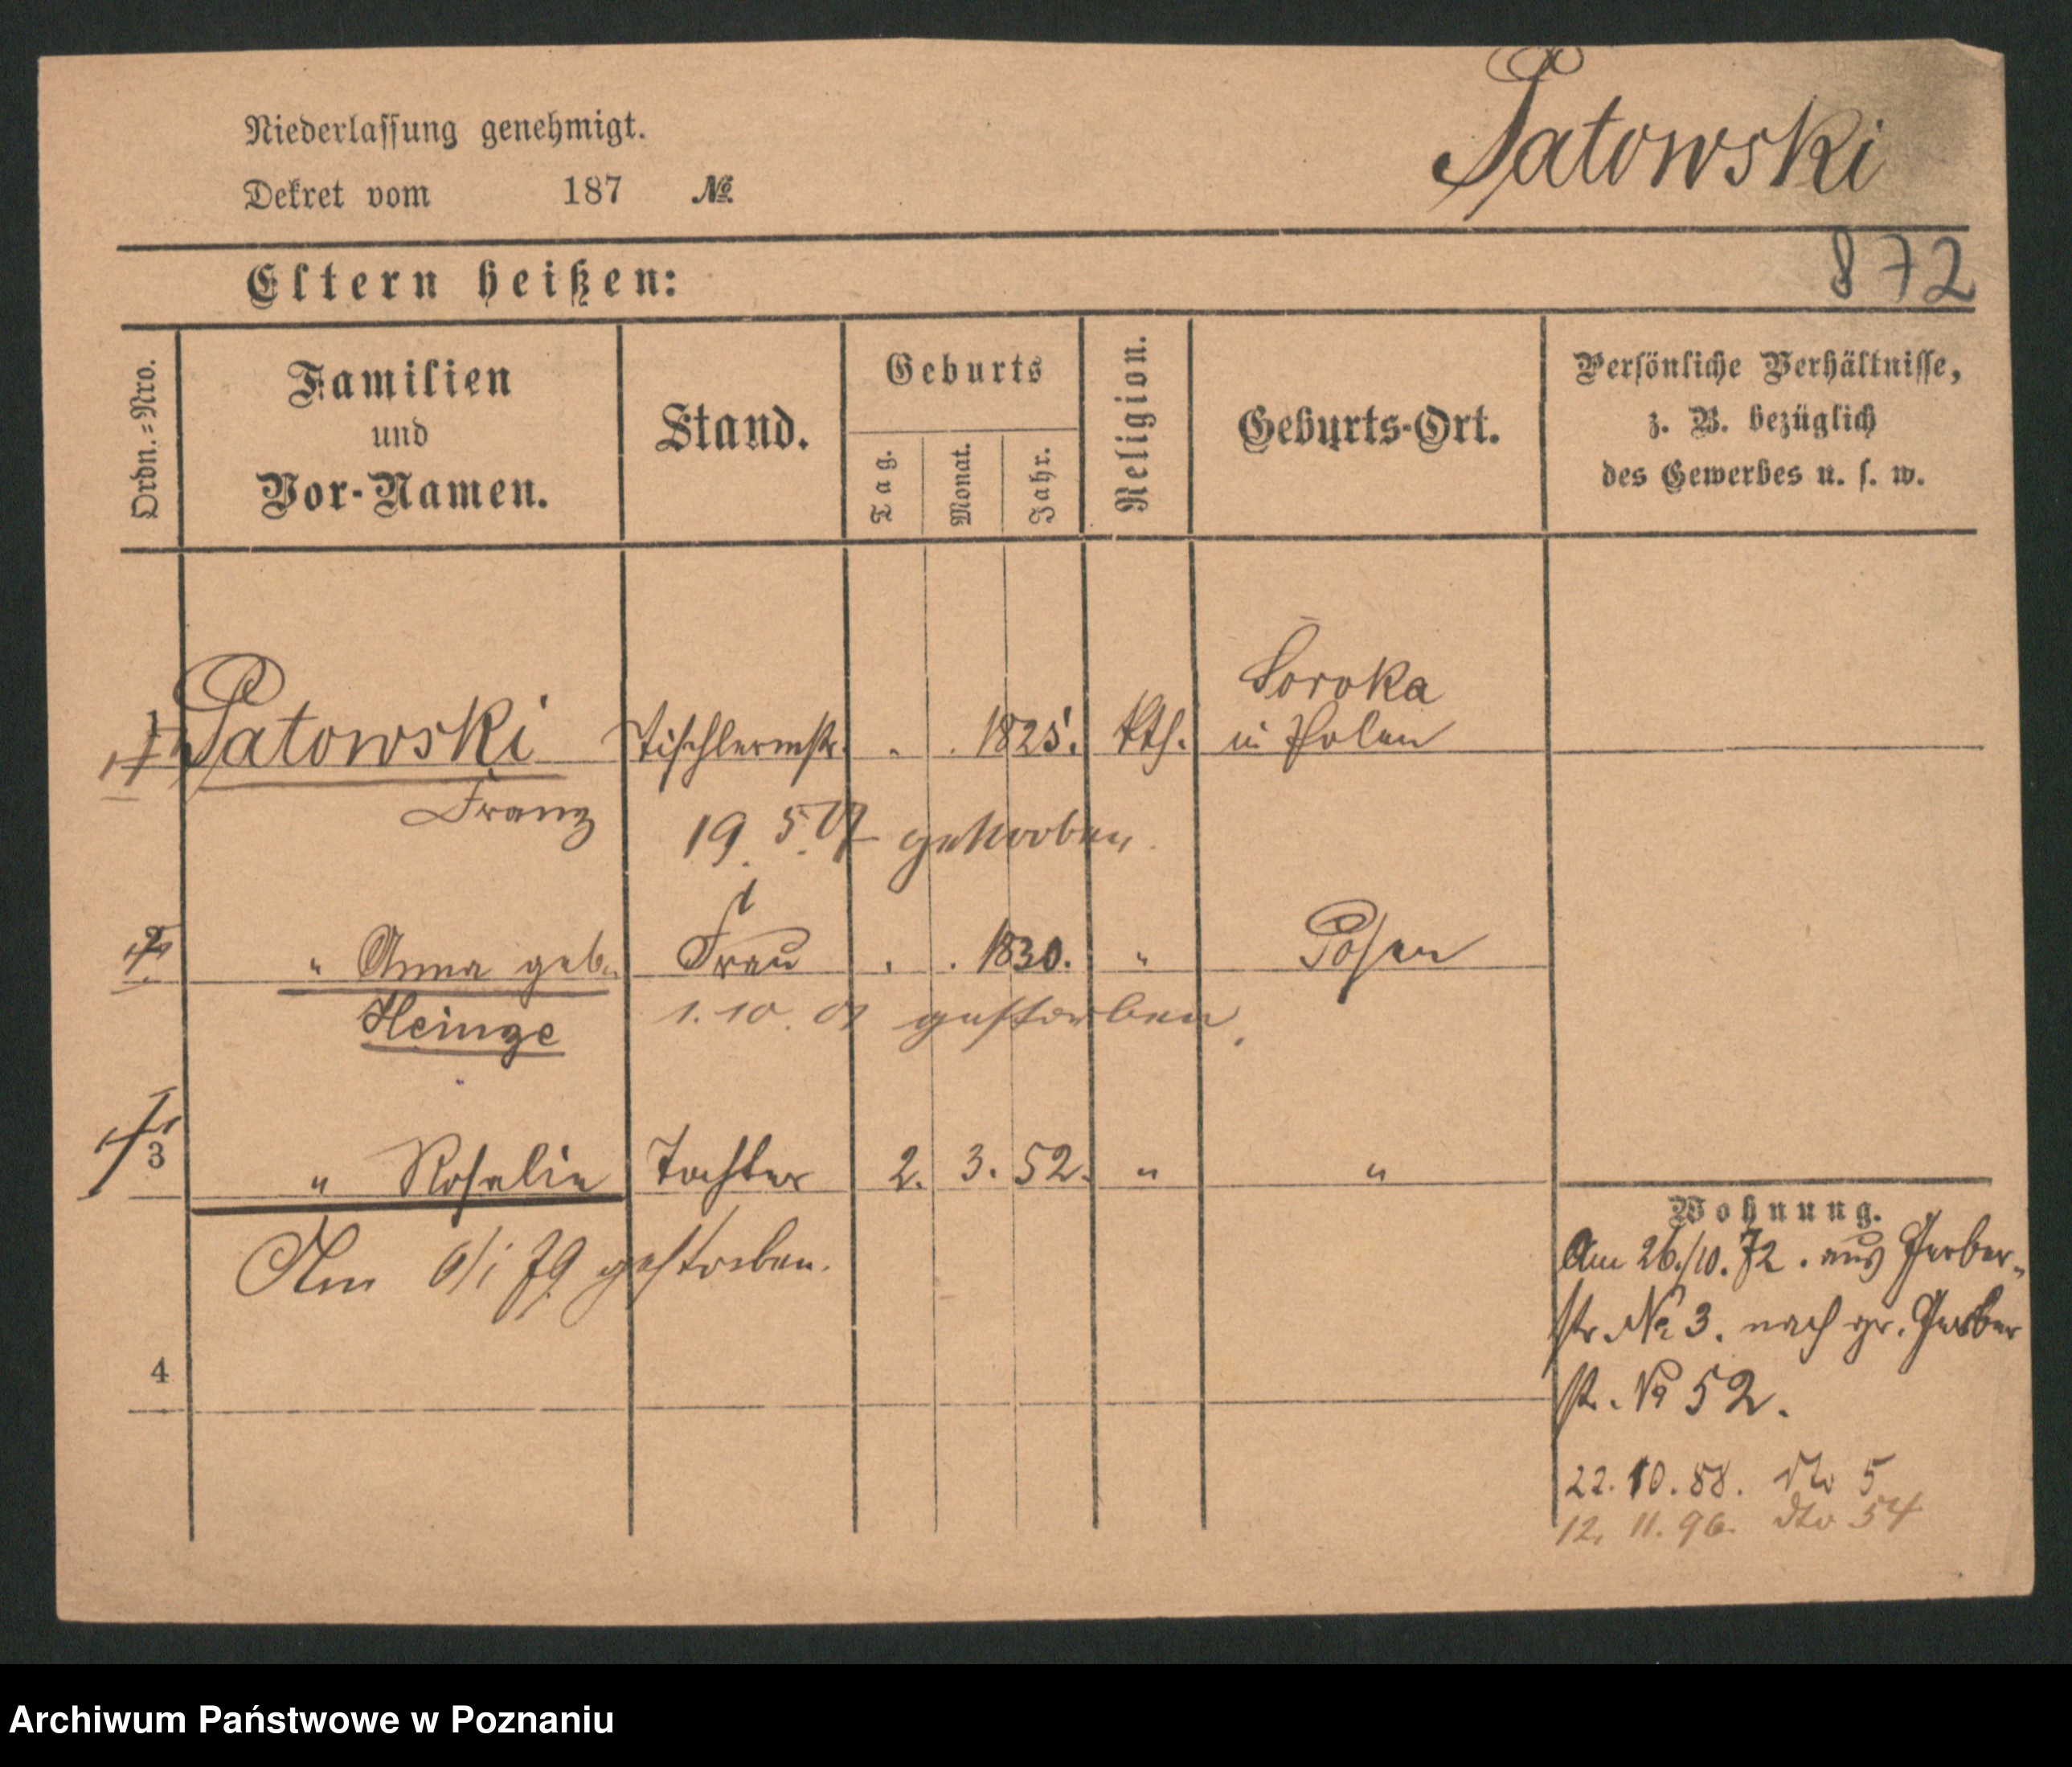 Niederlassung genehmigt.
Dekret vom 187 №
Patowski
872
Eltern heißen:
Ordn.=Nro.
Familien
und
Vor-Namen.
Stand.
Geburts
Tag.
Monat.
Jahr.
Religion.
Geburts-Ort.
Persönliche Verhältnisse,
z. B. bezüglich
des Gewerbes u. s. w.
1 Patowski Tischlermstr. . . 1825. kth. Soroka
in Polen
Franz
19. 5. 07 gestorben.
2 " Anna geb. Frau . . 1830. " Posen
Heinze
1. 10. 01 gestorben.
3 " Rosalie Tochter 2. 3. 52. " "
Am 6/1 79 gestorben.
4
Wohnung.
Am 26./10. 72. aus Gerber-
str. № 3. nach gr. Gerber
str. № 52.
22. 10. 88. No 5
12. 11. 96. No 54
Archiwum Państwowe w Poznaniu